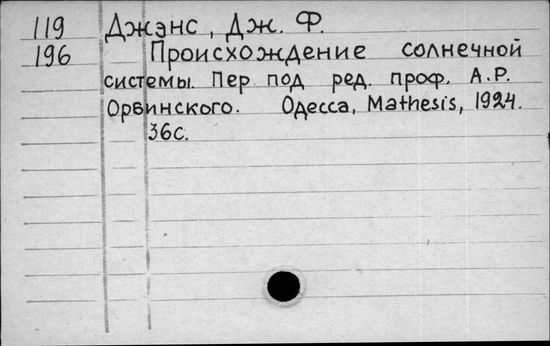 119 Джэнс, Дж. Ф.
196 Происхождение солнечной
системы. Пер. под ред. проф. А.Р.
Орбинского. Одесса, Mathesis, 1924.
36с.